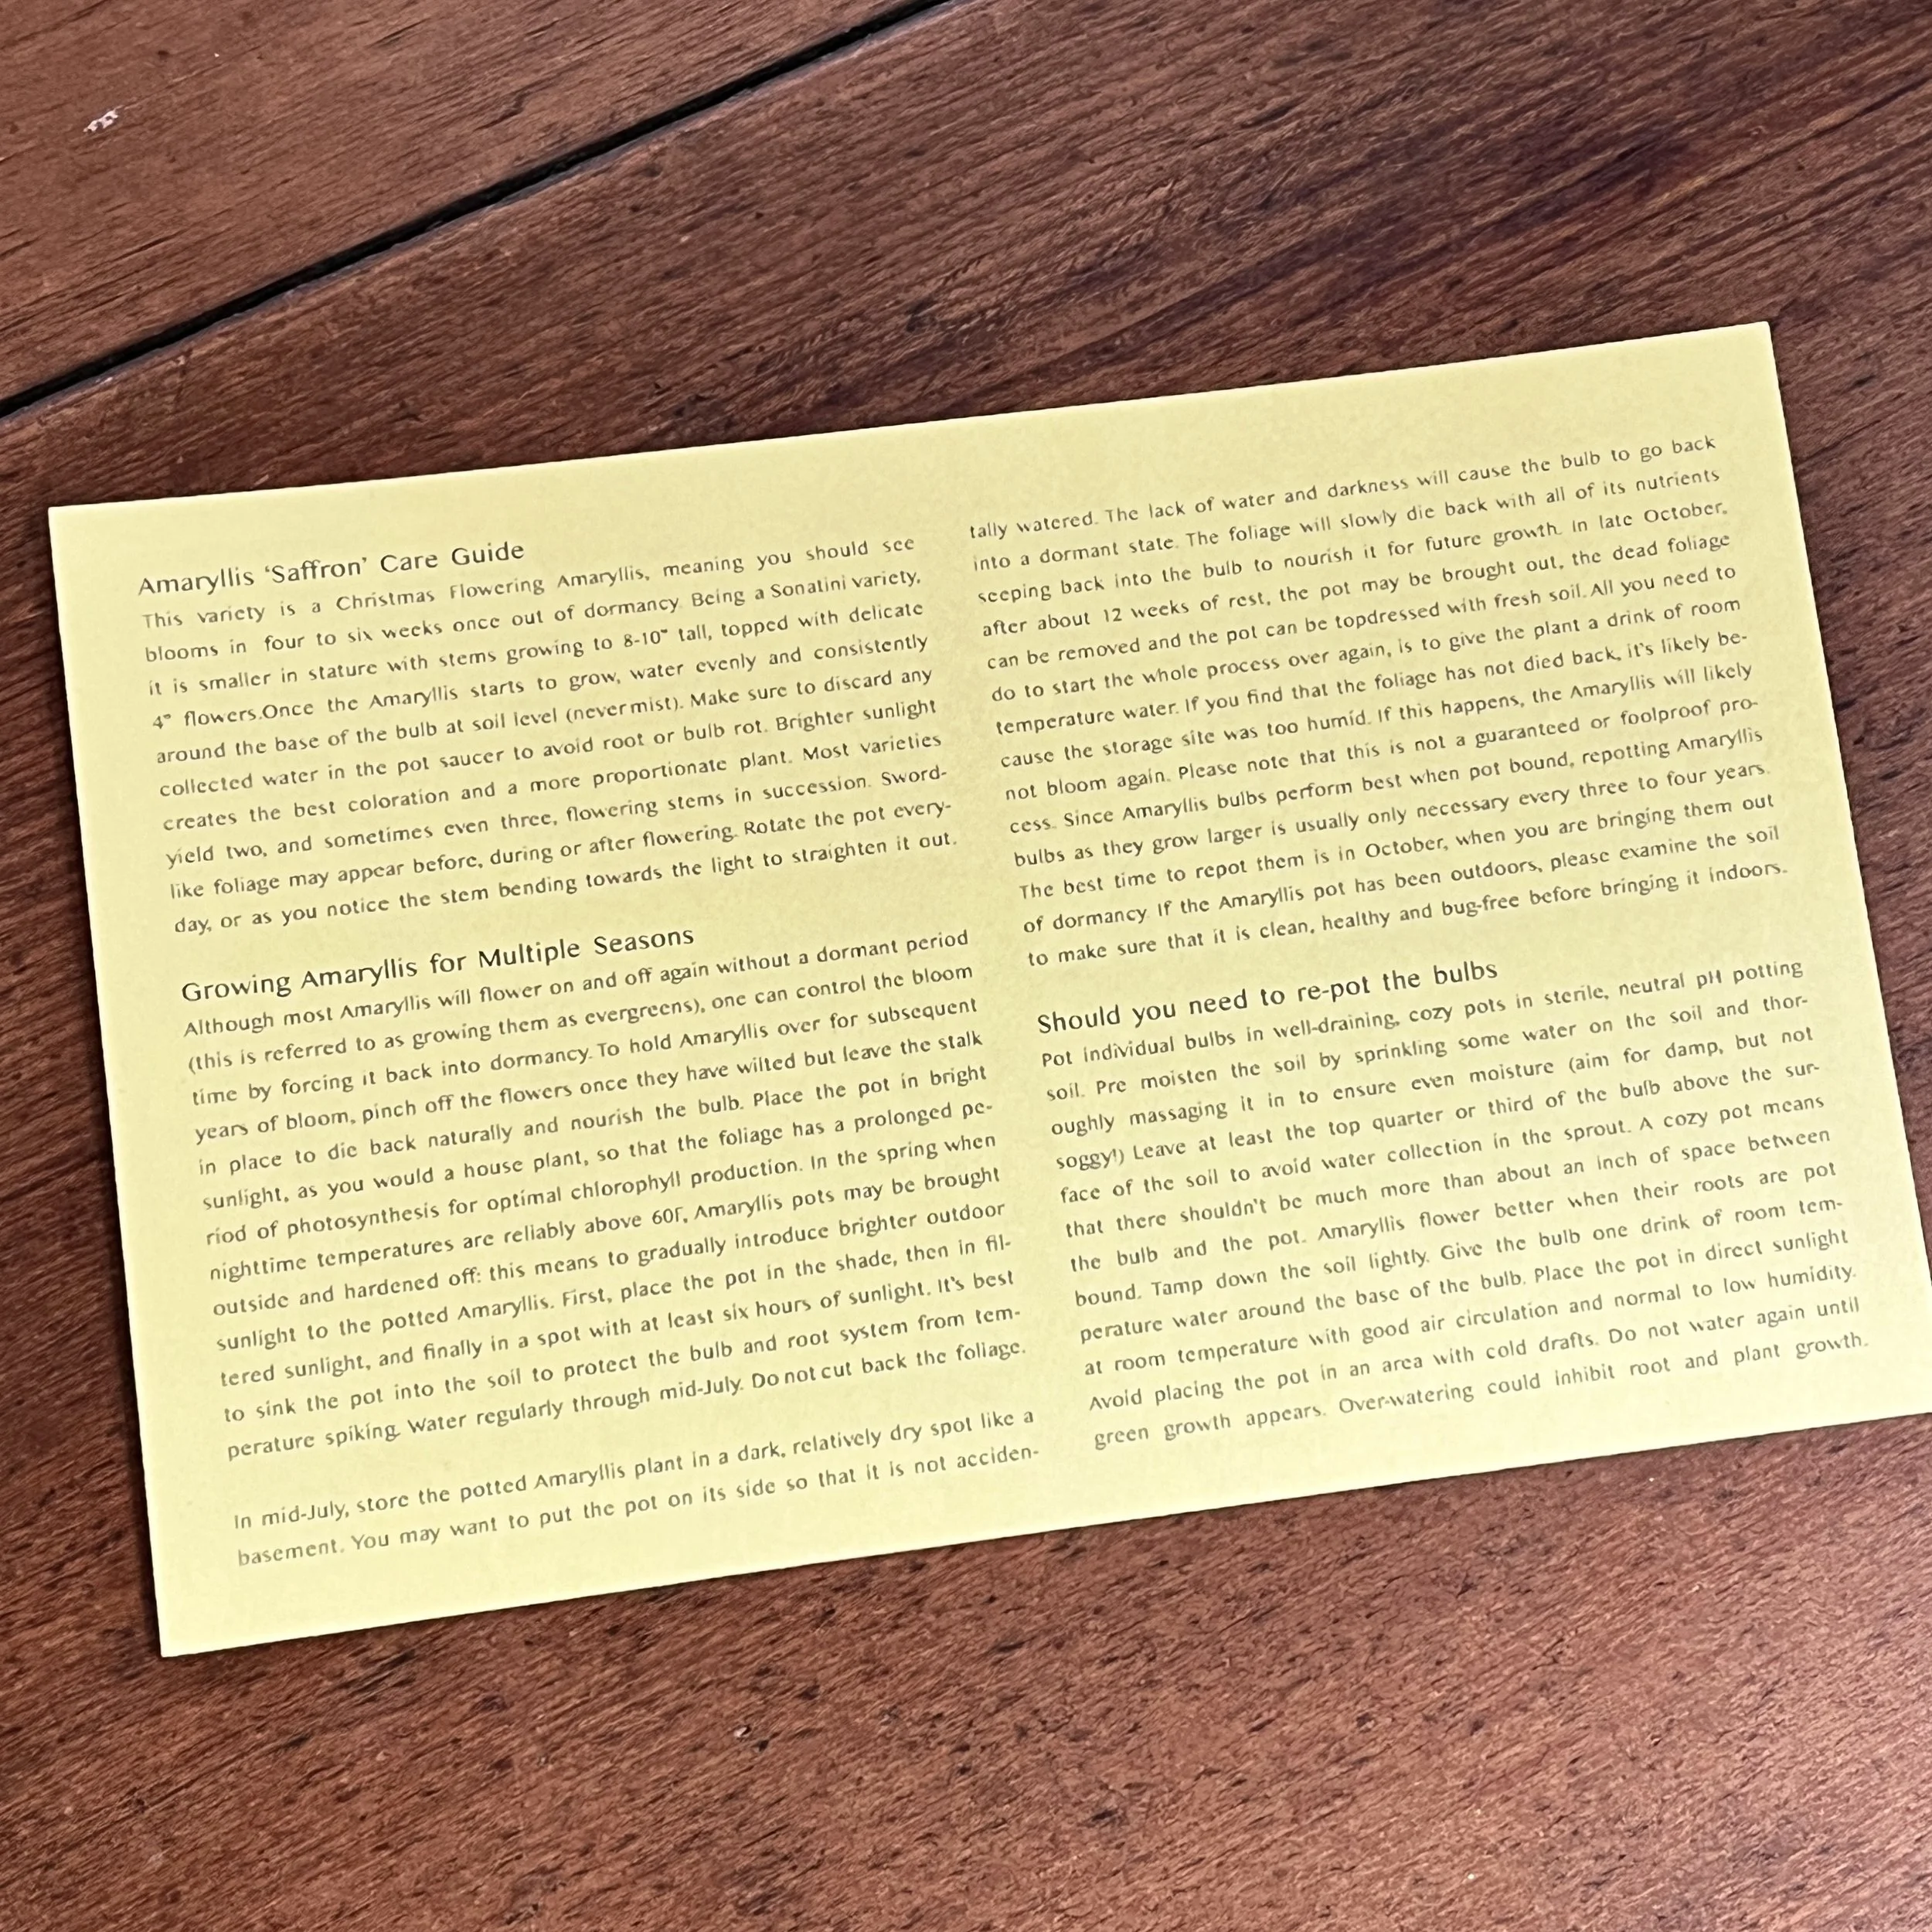 Amaryllis ‘Saffron’ Care Guide
This variety is a Christmas Flowering Amaryllis, meaning you should see
blooms in four to six weeks once out of dormancy. Being a Sonatini variety,
it is smaller in stature with stems growing to 8-10” tall, topped with delicate
4” flowers.Once the Amaryllis starts to grow, water evenly and consistently
around the base of the bulb at soil level (never mist). Make sure to discard any
collected water in the pot saucer to avoid root or bulb rot. Brighter sunlight
creates the best coloration and a more proportionate plant. Most varieties
yield two, and sometimes even three, flowering stems in succession. Sword-
like foliage may appear before, during or after flowering. Rotate the pot every-
day, or as you notice the stem bending towards the light to straighten it out.
Growing Amaryllis for Multiple Seasons
Although most Amaryllis will flower on and off again without a dormant period
(this is referred to as growing them as evergreens), one can control the bloom
time by forcing it back into dormancy. To hold Amaryllis over for subsequent
years of bloom, pinch off the flowers once they have wilted but leave the stalk
in place to die back naturally and nourish the bulb. Place the pot in bright
sunlight, as you would a house plant, so that the foliage has a prolonged pe-
riod of photosynthesis for optimal chlorophyll production. In the spring when
nighttime temperatures are reliably above 60F, Amaryllis pots may be brought
outside and hardened off: this means to gradually introduce brighter outdoor
sunlight to the potted Amaryllis. First, place the pot in the shade, then in fil-
tered sunlight, and finally in a spot with at least six hours of sunlight. It’s best
to sink the pot into the soil to protect the bulb and root system from tem-
perature spiking. Water regularly through mid-July. Do not cut back the foliage.
In mid-July, store the potted Amaryllis plant in a dark, relatively dry spot like a
basement. You may want to put the pot on its side so that it is not acciden-
tally watered. The lack of water and darkness will cause the bulb to go back
into a dormant state. The foliage will slowly die back with all of its nutrients
seeping back into the bulb to nourish it for future growth. In late October,
after about 12 weeks of rest, the pot may be brought out, the dead foliage
can be removed and the pot can be topdressed with fresh soil. All you need to
do to start the whole process over again, is to give the plant a drink of room
temperature water. If you find that the foliage has not died back, it’s likely be-
cause the storage site was too humid. If this happens, the Amaryllis will likely
not bloom again. Please note that this is not a guaranteed or foolproof pro-
cess. Since Amaryllis bulbs perform best when pot bound, repotting Amaryllis
bulbs as they grow larger is usually only necessary every three to four years.
The best time to repot them is in October, when you are bringing them out
of dormancy. If the Amaryllis pot has been outdoors, please examine the soil
to make sure that it is clean, healthy and bug-free before bringing it indoors.
Should you need to re-pot the bulbs
Pot individual bulbs in well-draining, cozy pots in sterile, neutral pH potting
soil. Pre moisten the soil by sprinkling some water on the soil and thor-
oughly massaging it in to ensure even moisture (aim for damp, but not
soggy!) Leave at least the top quarter or third of the bulb above the sur-
face of the soil to avoid water collection in the sprout. A cozy pot means
that there shouldn’t be much more than about an inch of space between
the bulb and the pot. Amaryllis flower better when their roots are pot
bound. Tamp down the soil lightly. Give the bulb one drink of room tem-
perature water around the base of the bulb. Place the pot in direct sunlight
at room temperature with good air circulation and normal to low humidity.
Avoid placing the pot in an area with cold drafts. Do not water again until
green growth appears. Over-watering could inhibit root and plant growth.